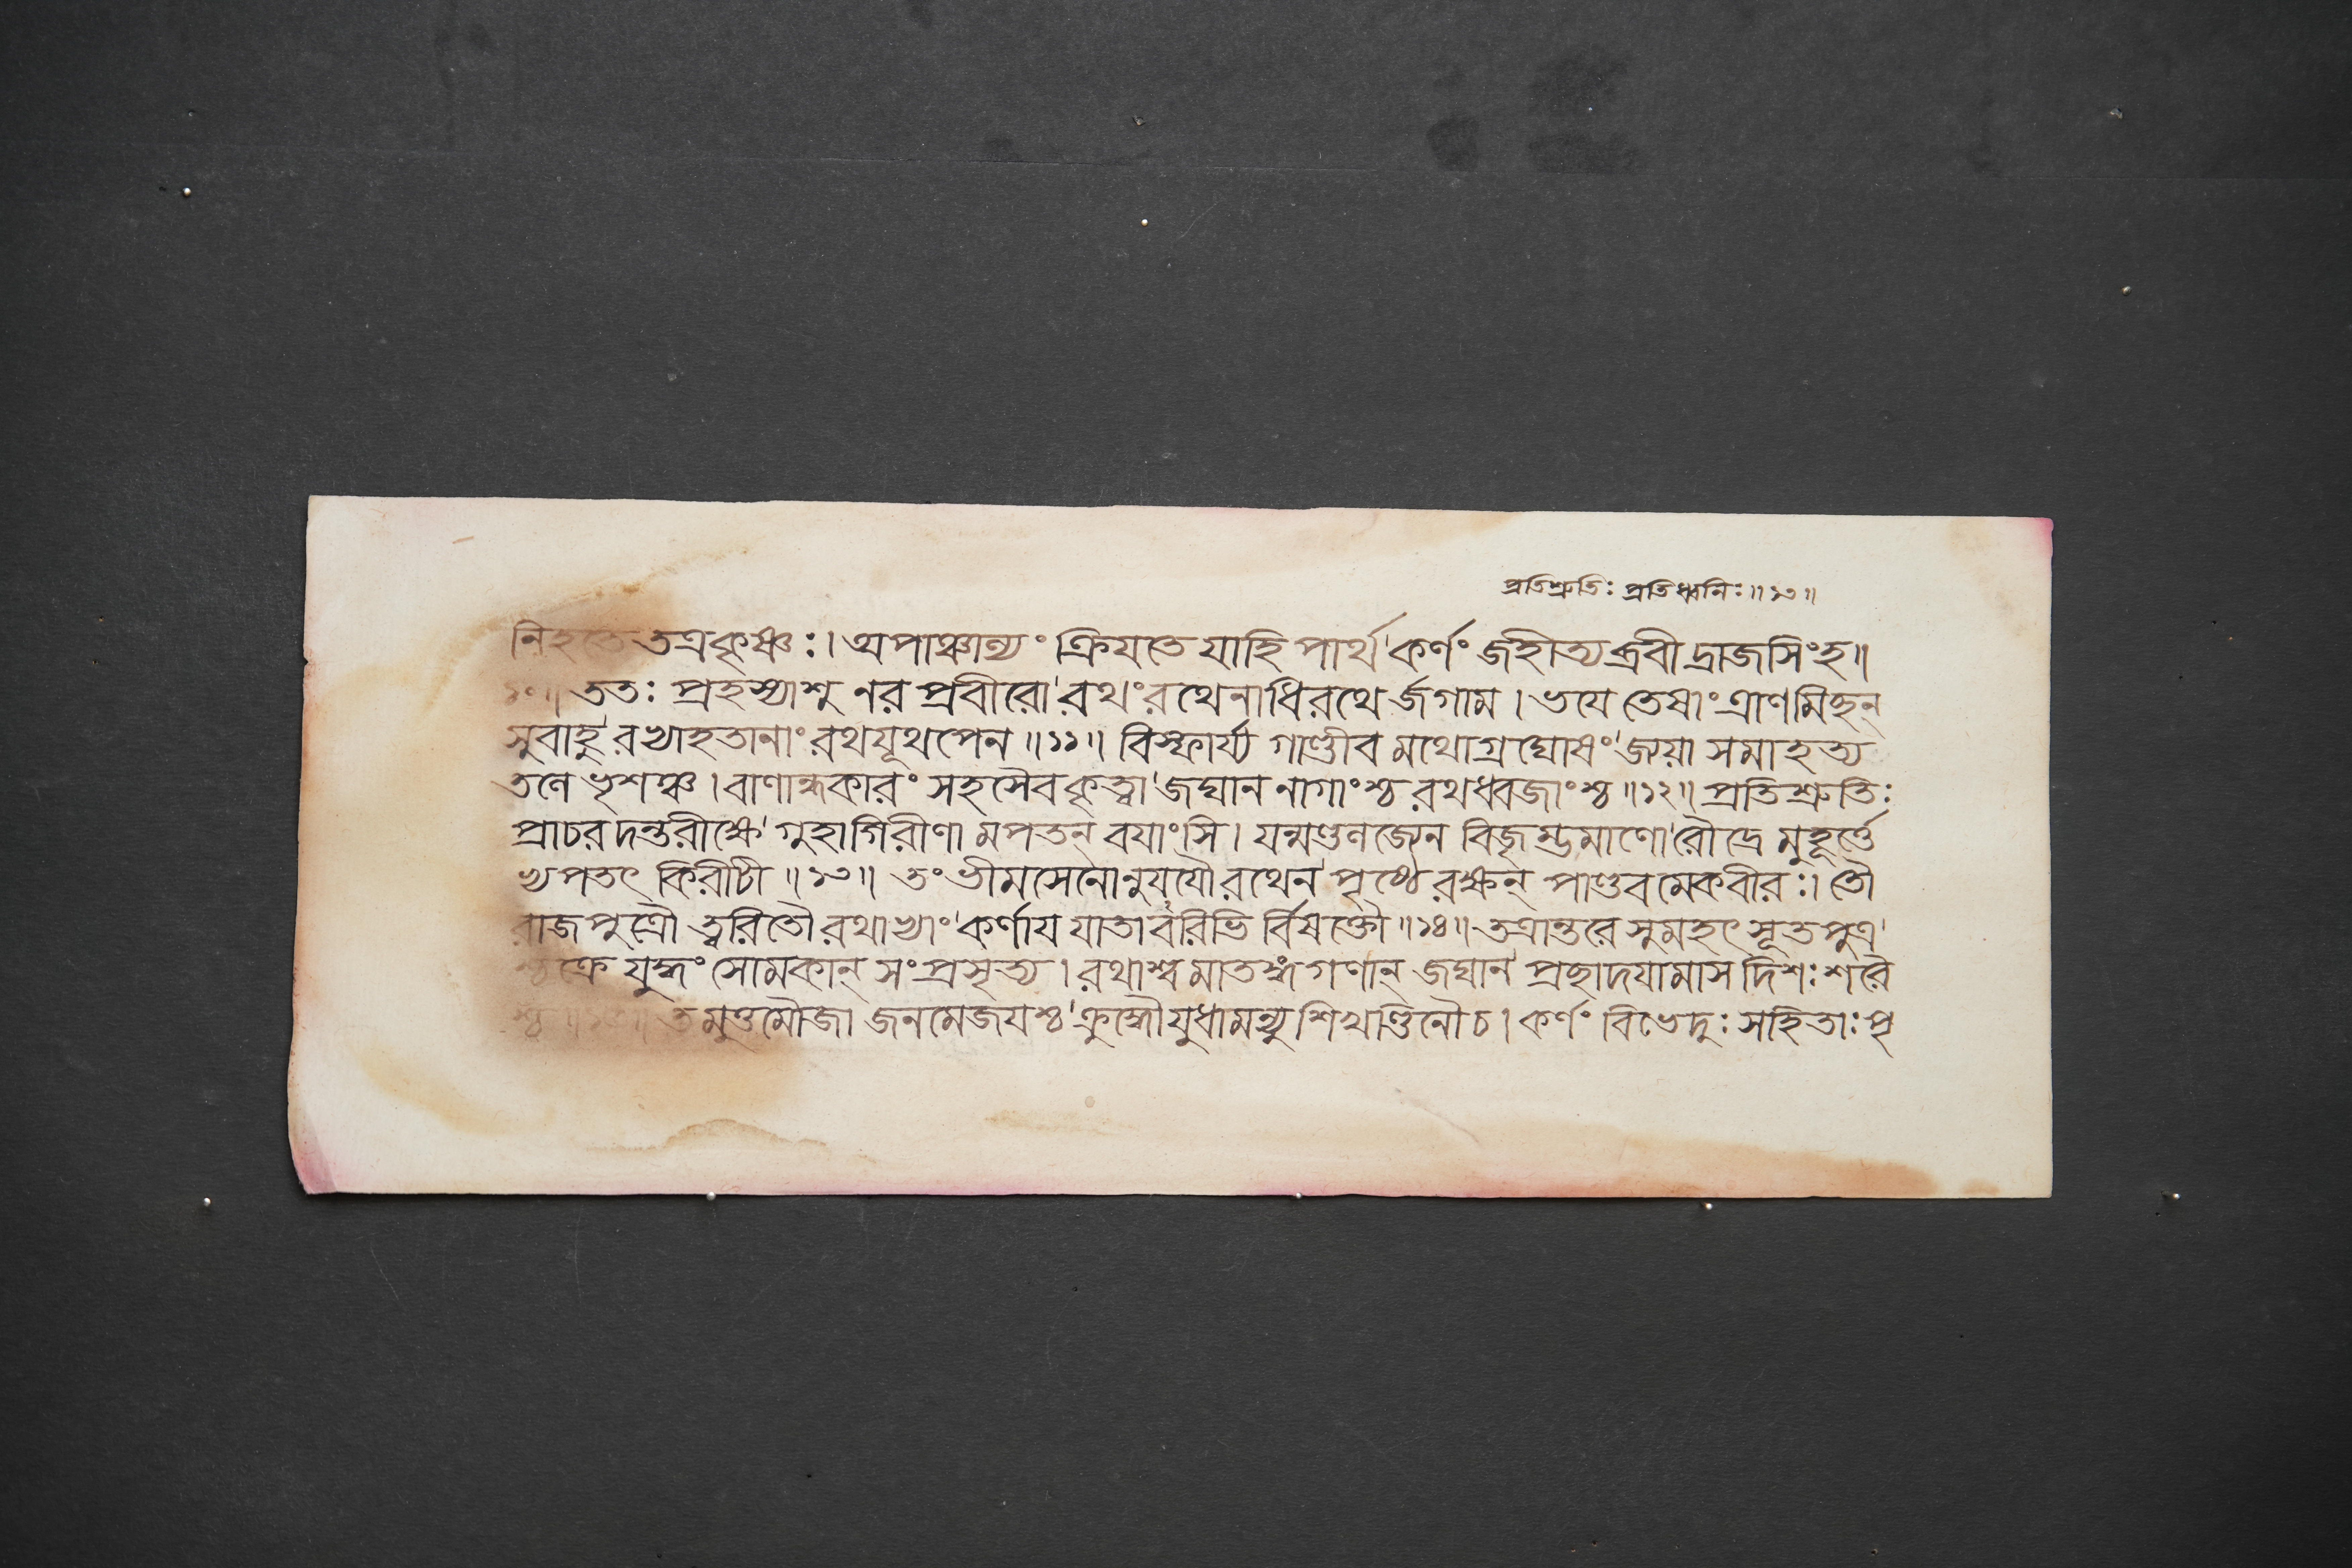 প্রতিশ্রুতিঃ প্রতিধ্বনিঃ ॥১৩॥
নিহতে তত্র কৃষ্ণঃ। অপাঞ্চান্যং ক্রিযতে যাহি পার্থ' কর্ণং জহীত্যব্রবী দ্রাজসিংহ॥
১০॥ ততঃ প্রহস্যাশু নর প্রবীরো' রথং রথেনাধিরথে র্জগাম। ভযে তেষাং ত্রাণমিচ্ছন্
সুবাহু' রখ্যাহতানাং রথযূথপেন॥১১॥ বিস্ফার্য্য গাণ্ডীব মথোগ্রঘোষং' জ্যযা সমাহত্য
তলে ভৃশঞ্চ। বাণান্ধকারং সহসৈব কৃত্বা' জঘান নাগাংশ্চ রথধ্বজাংশ্চ॥১২॥ প্রতিশ্রুতিঃ
প্রাচর দন্তরীক্ষে' গুহাগিরীণা মপতন্ বযাংসি। যন্মণ্ডলজ্যেন বিজৃম্ভমাণো' রৌদ্রে মুহূর্ত্তে
খ্যপতৎ কিরীটী॥১৩॥ তং ভীমসেনোনুযযৌ রথেন' পৃষ্ঠে রক্ষন্ পাণ্ডব মেকবীরঃ। তৌ
রাজপুত্রৌ ত্বরিতৌ রথাখ্যাং' কর্ণায যাতাবরিভি র্বিষক্তৌ॥১৪॥ তত্রান্তরে সুমহৎ সূতপুত্র'
শ্চক্রে যুদ্ধং সোমকান্ সংপ্রসৃত্য। রথাশ্ব মাতঙ্গ গণান্ জঘান' প্রচ্ছাদযামাস দিশঃ শরৈ
শ্চ॥১৫॥ তমুত্তমৌজা জনমেজযশ্চ' ক্রুদ্ধৌ যুধামন্যু শিখণ্ডিনৌ চ। কর্ণং বিভেদুঃ সহিতাঃ পৃ